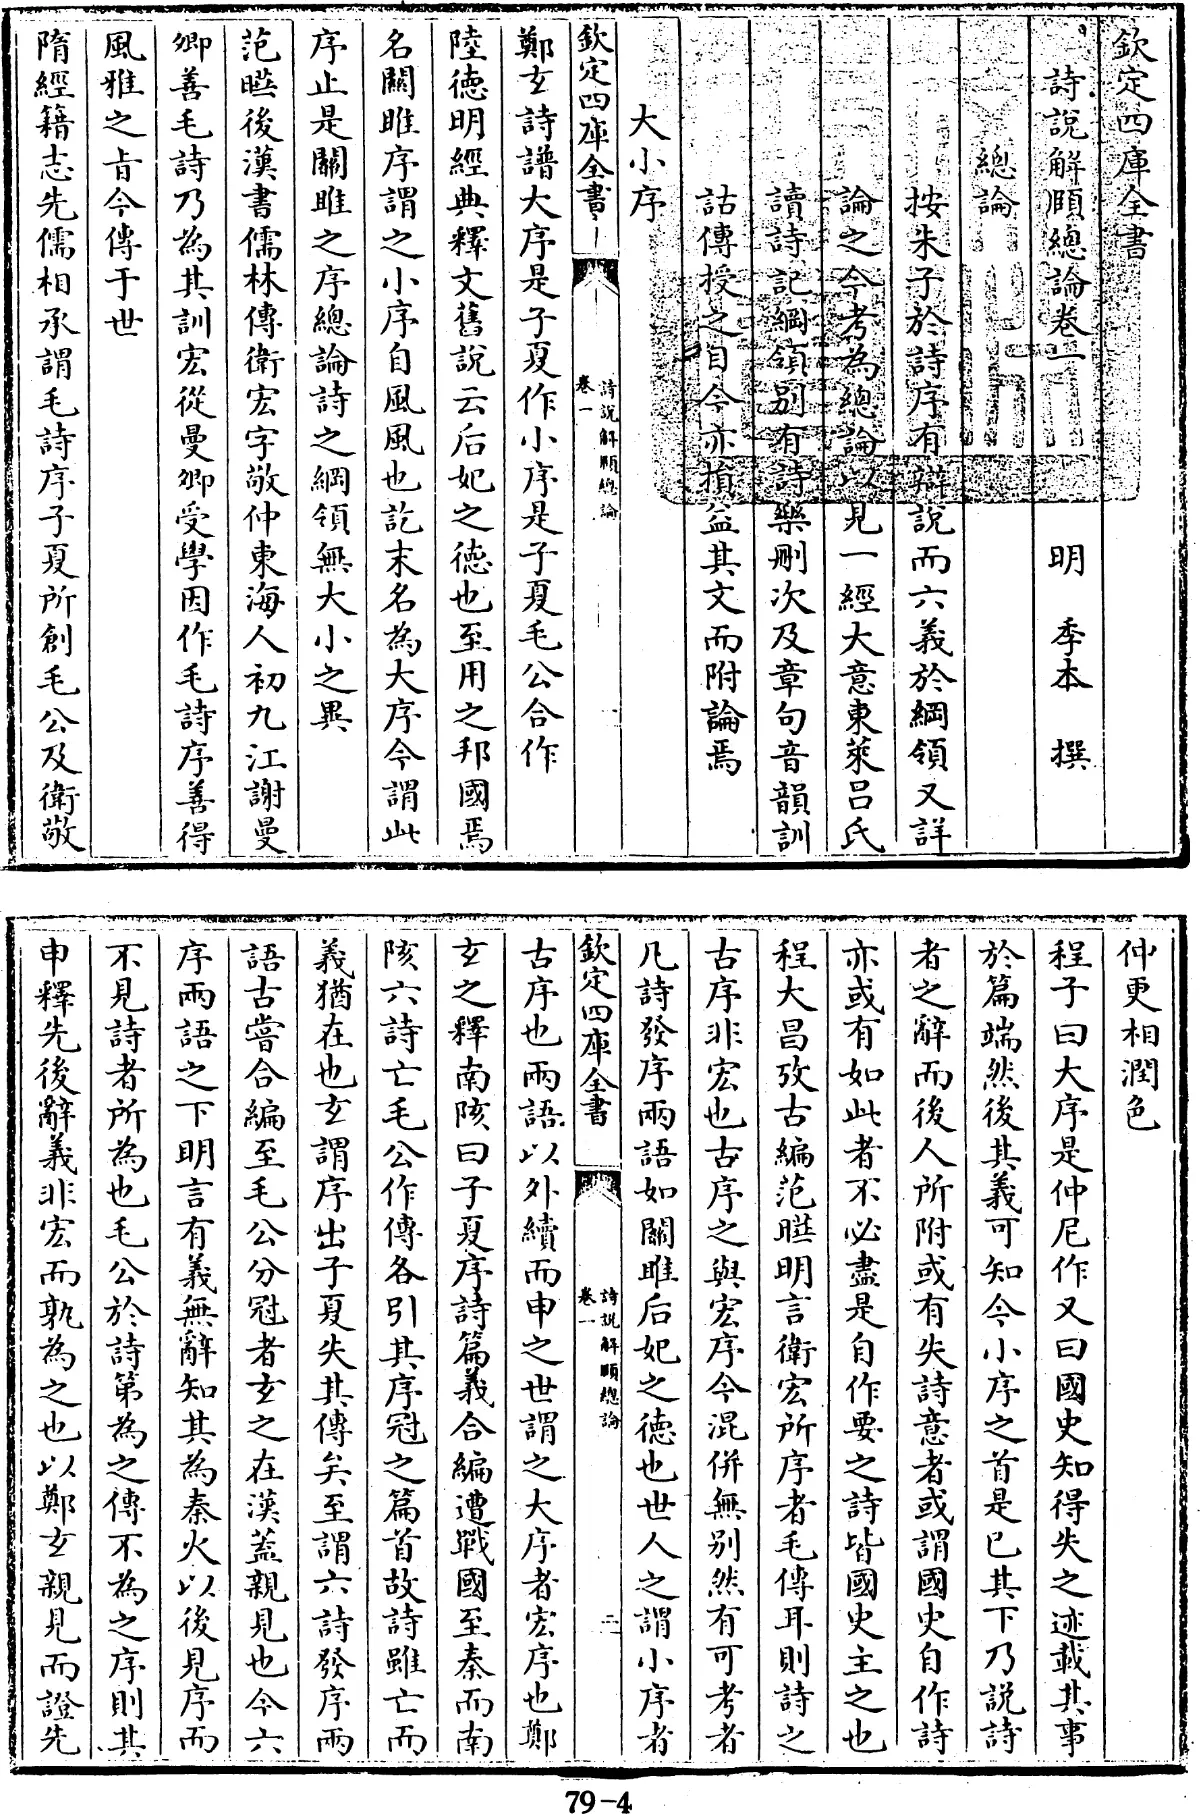 欽定四庫全書
詩說解頤總論卷一
明 季本 撰
總論
按朱子於詩序有辯說而六義於綱領又詳
論之今考為總論以見一經大意東萊吕氏
讀詩記綱領别有詩樂刪次及章句音韻訓
詁傳授之目今亦損益其文而附論焉
大小序
欽定四庫全書
詩說解頤總論
卷一
一
鄭玄詩譜大序是子夏作小序是子夏毛公合作
陸德明經典釋文舊說云后妃之德也至用之邦國焉
名關雎序謂之小序自風風也訖末名為大序今謂此
序止是關雎之序總論詩之綱領無大小之異
范曄後漢書儒林傳衛宏字敬仲東海人初九江謝曼
卿善毛詩乃為其訓宏從曼卿受學因作毛詩序善得
風雅之旨今傳于世
隋經籍志先儒相承謂毛詩序子夏所創毛公及衛敬
仲更相潤色
程子曰大序是仲尼作又曰國史知得失之迹載其事
於篇端然後其義可知今小序之首是已其下乃說詩
者之辭而後人所附或有失詩意者或謂國史自作詩
亦或有如此者不必盡是自作要之詩皆國史主之也
程大昌攷古編范曄明言衛宏所序者毛傳耳則詩之
古序非宏也古序之與宏序今混併無别然有可考者
凡詩發序兩語如關雎后妃之德也世人之謂小序者
欽定四庫全書
詩說解頤總論
卷一
二
古序也兩語以外續而申之世謂之大序者宏序也鄭
玄之釋南陔曰子夏序詩篇義合編遭戰國至秦而南
陔六詩亡毛公作傳各引其序冠之篇首故詩雖亡而
義猶在也玄謂序出子夏失其傳矣至謂六詩發序兩
語古嘗合編至毛公分冠者玄之在漢蓋親見也今六
序兩語之下明言有義無辭知其為秦火以後見序而
不見詩者所為也毛公於詩第為之傳不為之序則其
申釋先後辭義非宏而孰為之也以鄭玄親見而證先
79-4